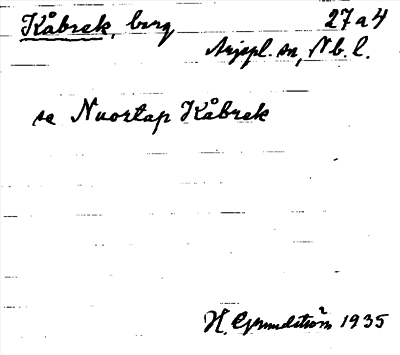 Kåbrek, berg 27a4
Arjepl. sn, Nb. l.
se Nuortap Kåbrek
H. Grundström 1935